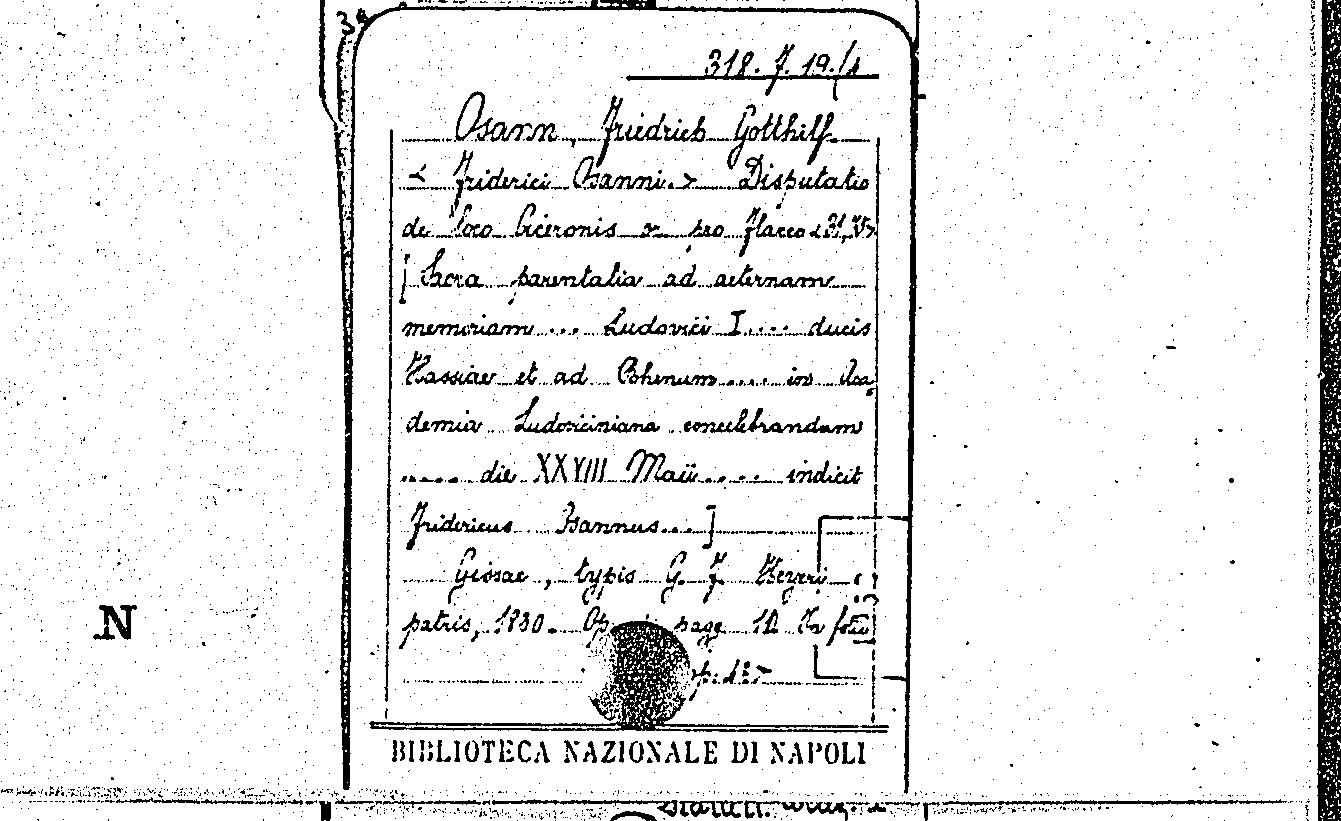 318. J. 19./1
Osann, Friedrich Gotthilf.
< Friderici Osanni. > Disputatio
de loco Ciceronis or. pro Flacco <31,75>
[Sacra parentalia ad aeternam
memoriam ... Ludovici I.... ducis
Hassiae et ad Rhenum.... in Aca
demia Ludoviciniana concelebrandam
..... die XXVIII Maii.... indicit
Fridericus Osannus...]
Gissae, typis G. F. Heyeri
patris, 1830. Op. page 12. In
N
BIBLIOTECA NAZIONALE DI NAPOLI